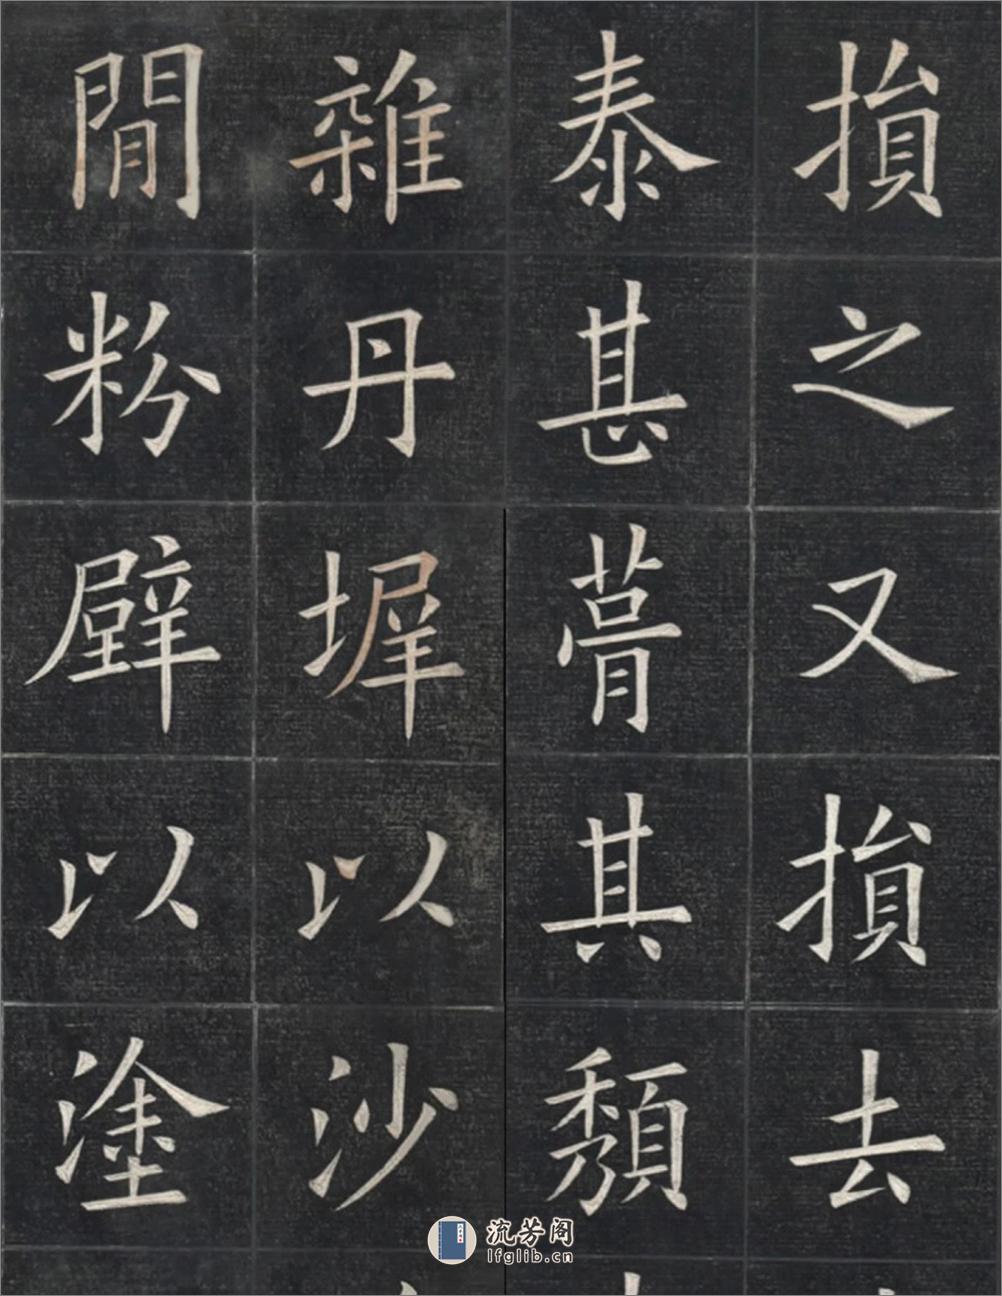 損之又損去
泰甚葺其頹
雜丹墀以沙
閒粉壁以塗
流芳阁
lfglib.cn